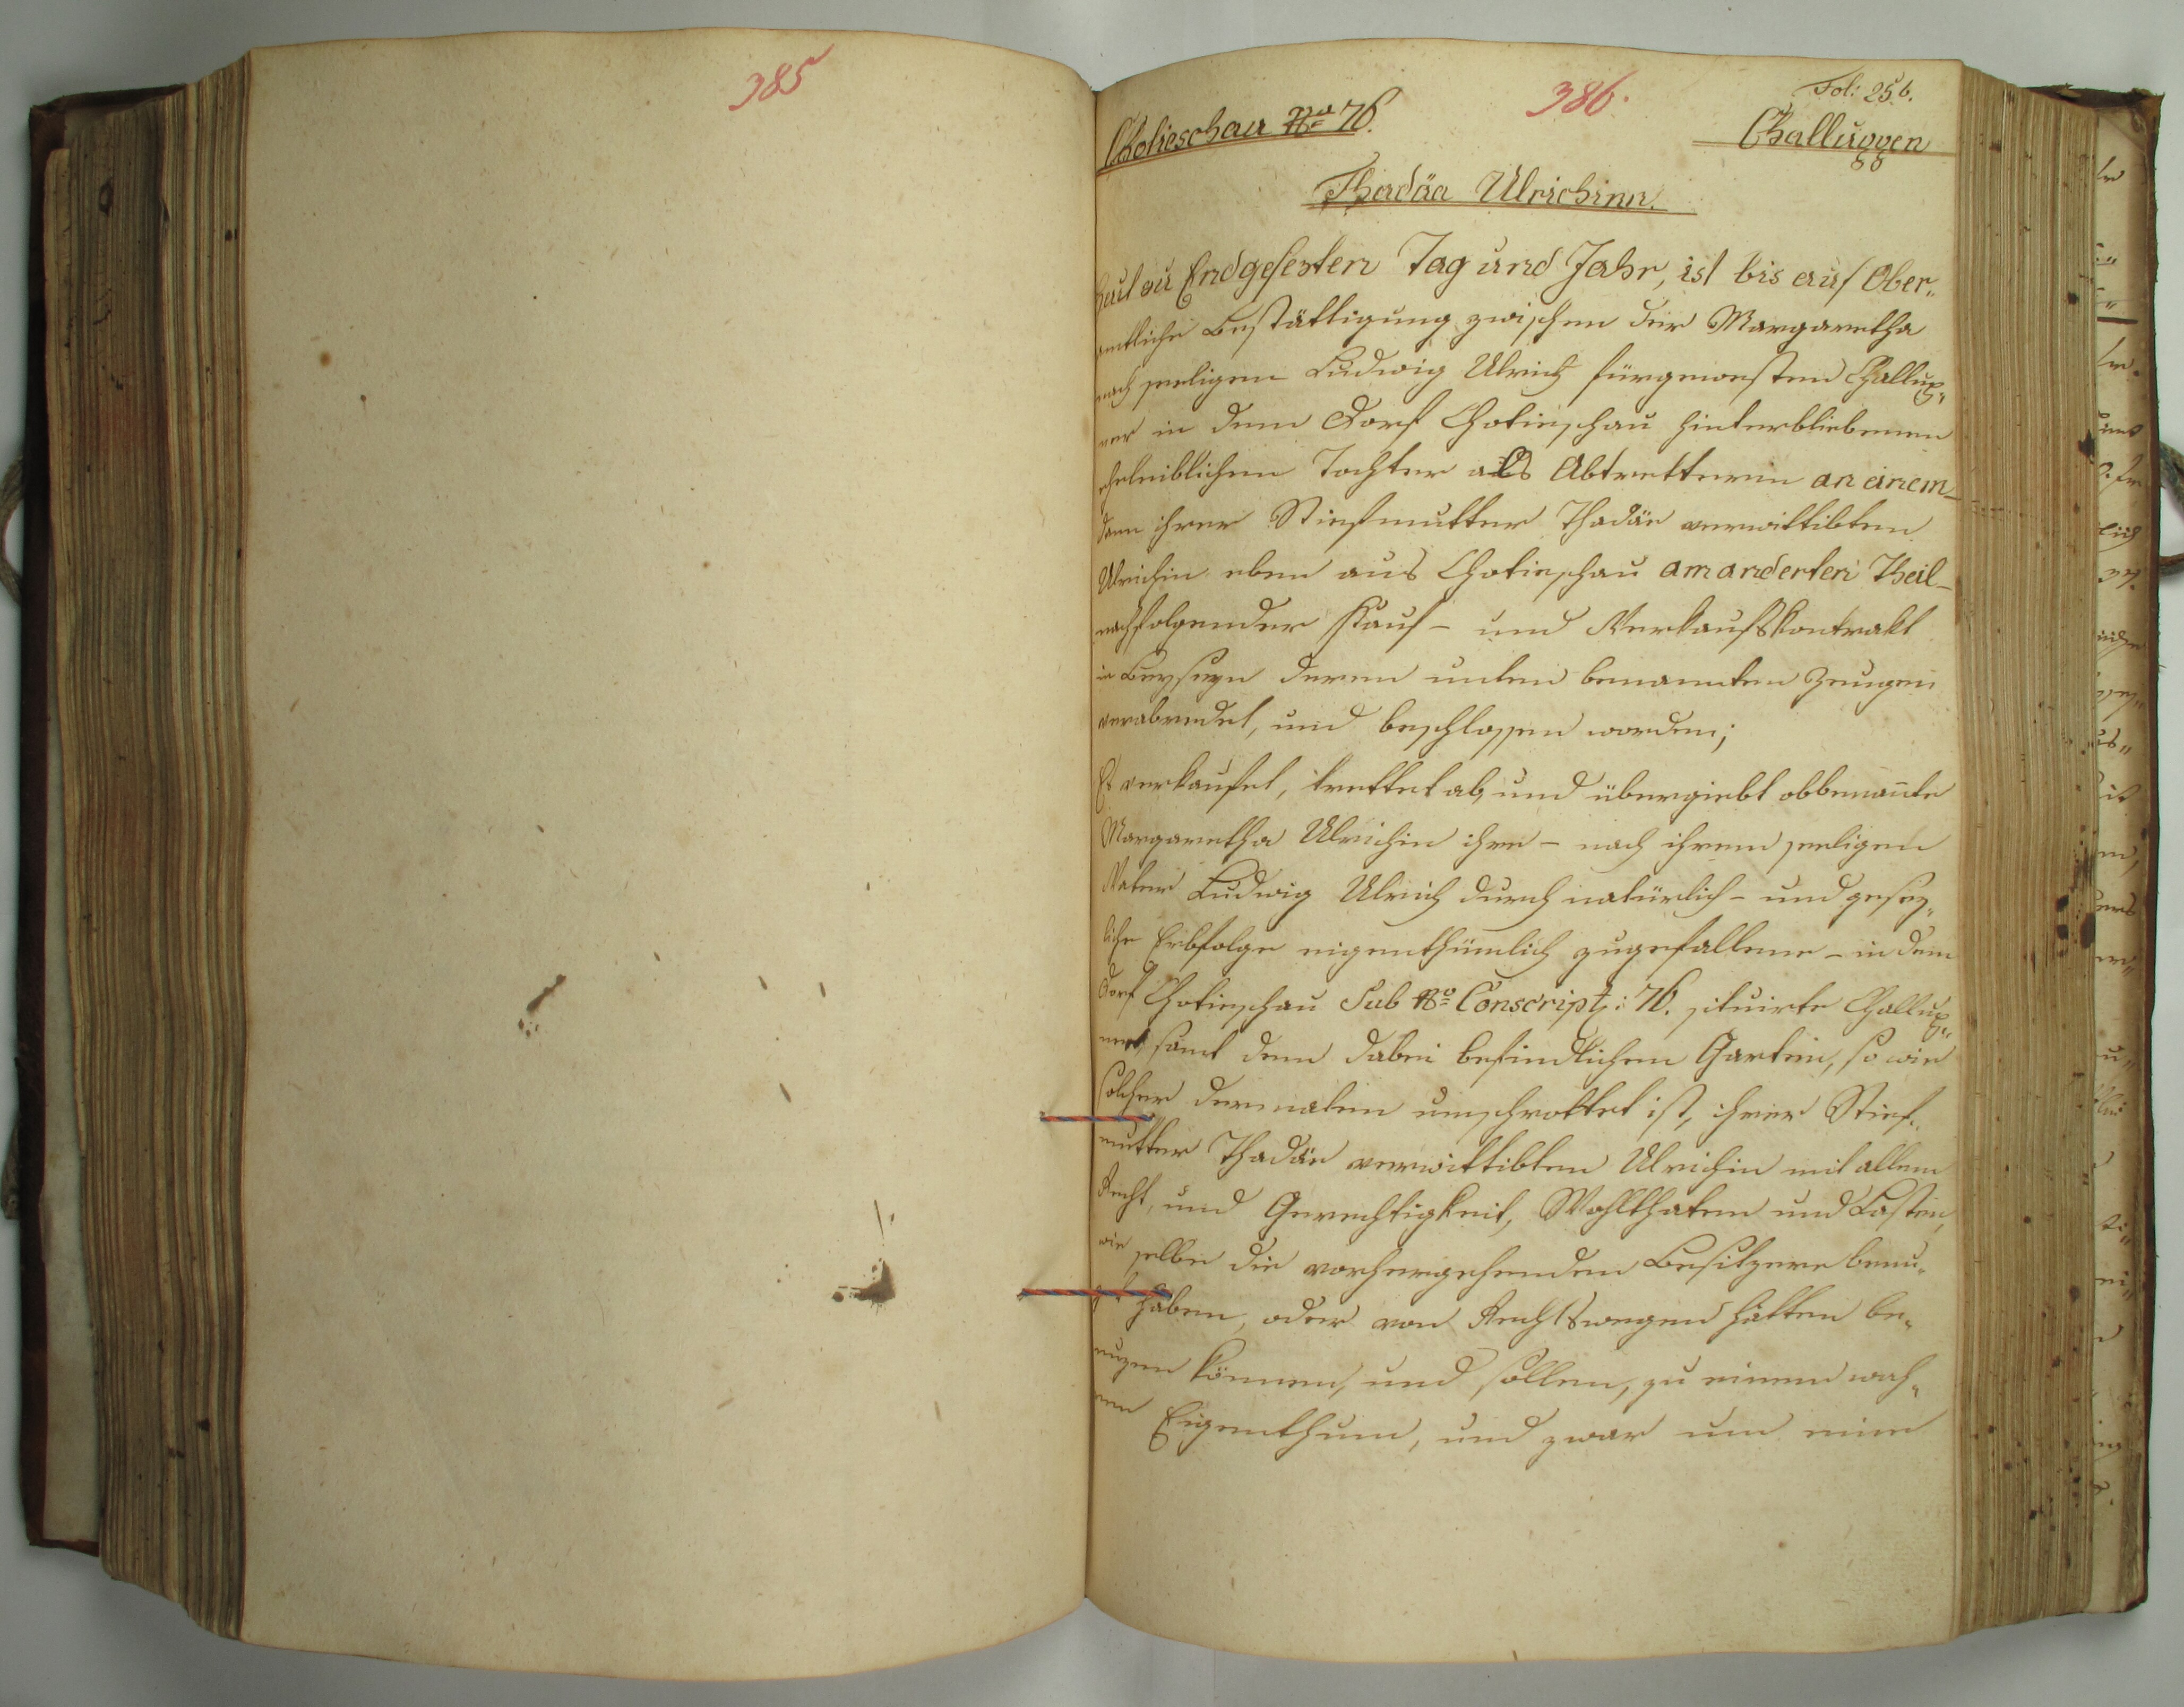 385
386.
Fol: 256.
Chotieschau No 76.
Challuppen
Thadäa Ulrichinn.
Heut zu Endgesezten Tag und Jahr, ist bis auf Ober„
amtliche Bestättigung zwischen der Margaretha
nach seeligen Ludwig Ulrich fürgewesten Challup„
ner in dem Dorf Chotieschau hinterbliebenen
eheleiblichen Tochter als Abtretterin an einem
dann ihrer Stiefmutter Thadäa verwittibten
Ulrichin eben aus Chotieschau am anderten Theil
nachfolgender Kauf- und Verkaufskontrakt
in Beyseyn deren unten benannten Zeugen
verabredet, und beschlossen worden;
Es verkaufet, trettet ab, und übergiebt obbenannte
Margaretha Ulrichin ihre - nach ihrem seeligen
Vater Ludwig Ulrich durch natürlich- und gesez„
liche Erbfolge eigenthümlich zugefallene - in dem
Dorf Chotieschau Sub No Conscript: 76. situirte Challup„
nen samt dem dabei befindlichen Gartein, so wie
solcher dermalen umschrottet ist, ihrer Stief„
mutter Thadäa verwittibten Ulrichin mit allem
Recht, und Gerechtigkeit, Wohlthaten und Lasten,
wie selbe die vorhergehenden Besitzere benu„
zt haben, oder von Rechtswegen hätten be„
nuzen können, und sollen, zu einem wah„
ren Eigenthum, und zwar um eine